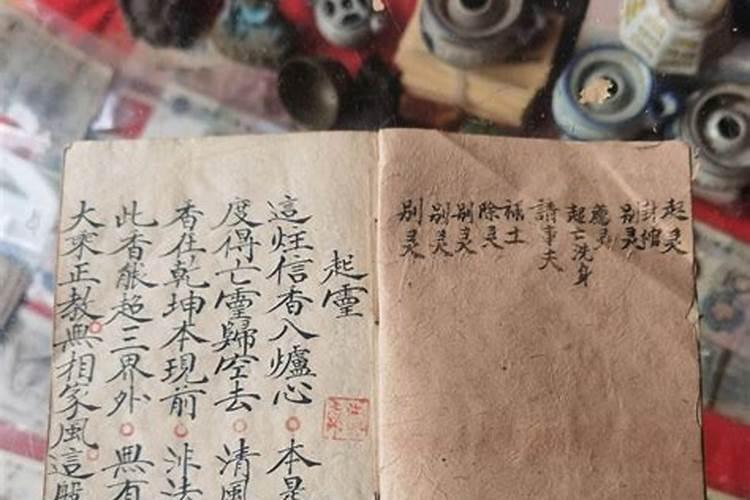 起灵
封棺
别灵
起亡洗身
請事夫
禒土
除灵
别灵
别灵
别灵
起霊
這炷信香入爐心 本是
度得亡霊歸空去 清風
香在乾坤本現前 非法
此香能超三界外 無有
大乘正教無相家風這般